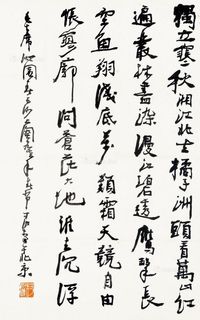 獨立寒秋湘江北去橘子洲頭看萬山紅
遍層林盡染漫江碧透鷹擊長
空魚翔淺底萬類霜天競自由
悵寥廓問蒼茫大地誰主沉浮
毛主席沁園春